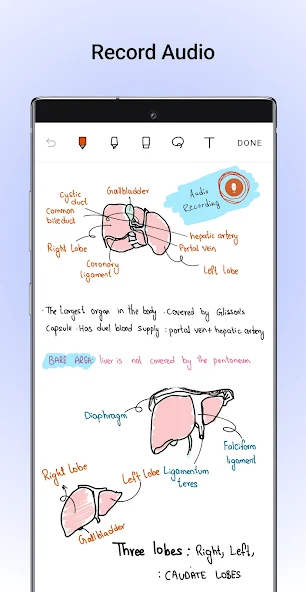 Record Audio
T DONE
Cystic
duct
Gallbladder
Common
bileduct
Audio
Recording
Right lobe
hepatic artery
Portal vein
Coronary
ligament
Left lobe
· The largest organ in the body · Covered by Glisson's
Capsule · Has duel blood supply : portal vein + hepatic artery
BARE AREA: liver is not covered by the peritoneum
Diaphragm
Falciform
ligament
Right lobe
Left lobe
Ligamentum
teres
Gallbladder
Three lobes : Right, Left,
: CAUDATE LOBES